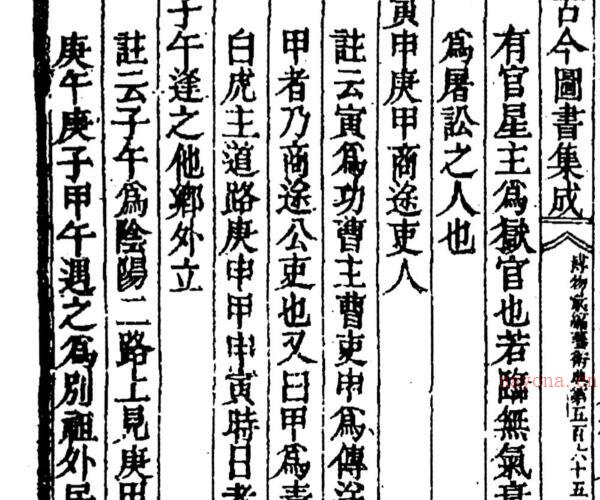 古今圖書集成
博物彙編藝術典第五百八十五
有官星主爲獄官也若臨無氣
爲屠訟之人也
寅申庚甲商途吏人
註云寅爲功曹主曹吏申爲傳
甲者乃商途公吏也又曰甲爲
白虎主道路庚申甲申寅時日者
子午逢之他鄉外立
註云子午爲陰陽二路上見庚
庚午庚子甲午遇之爲別祖外居